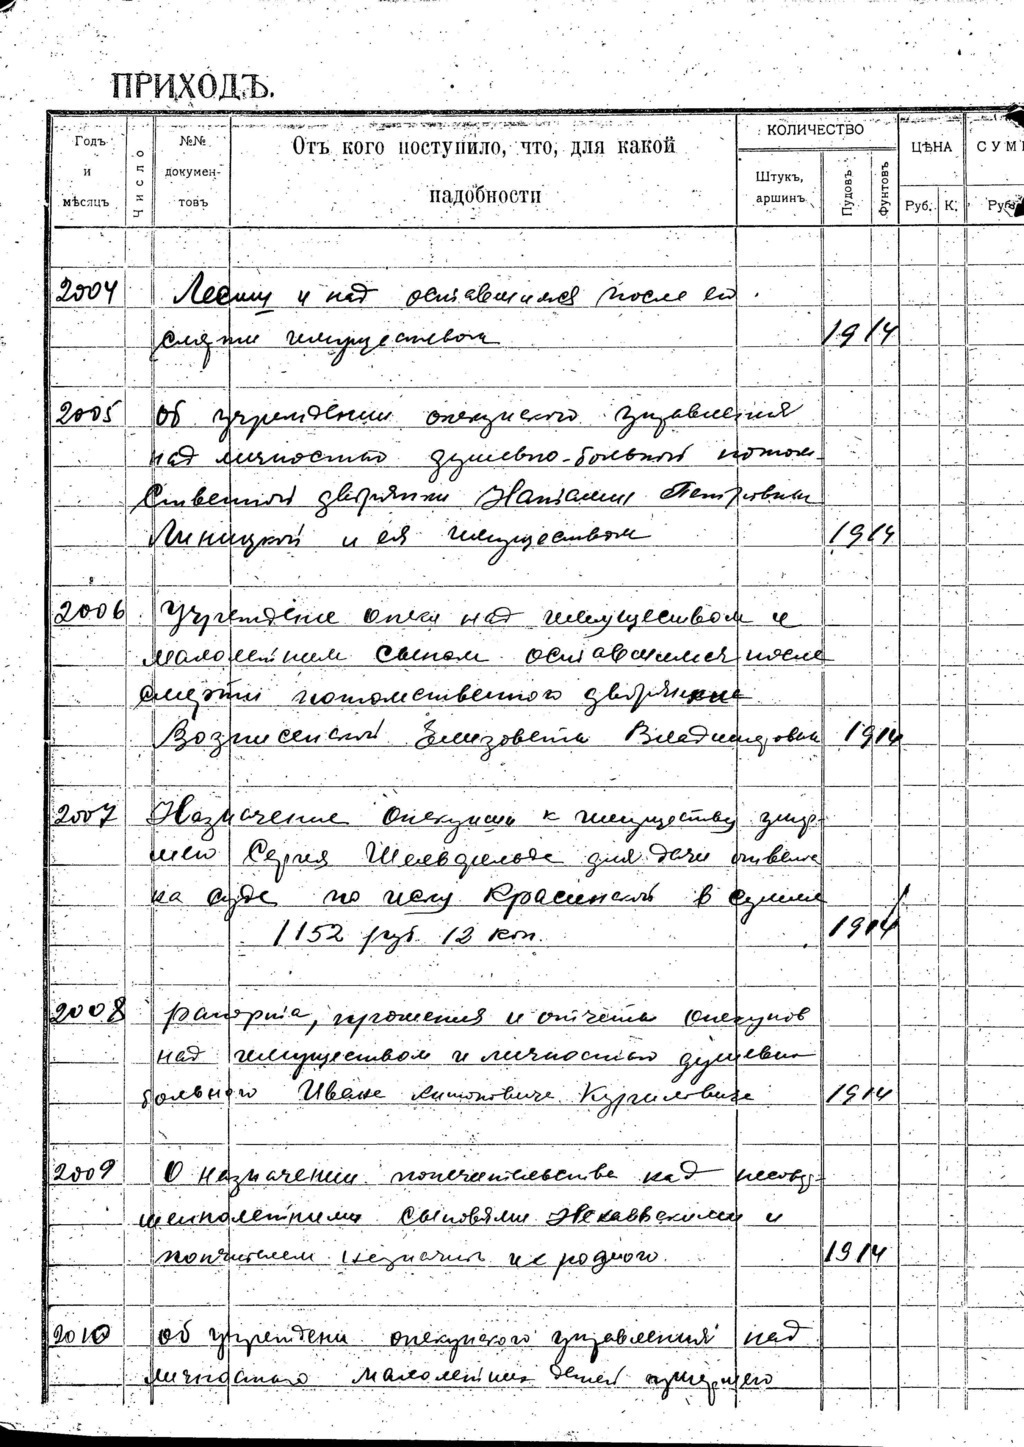 ПРИХОДЪ.
Годъ и мѣсяцъ
Число
№№ докумен-товъ
Отъ кого поступило, что, для какой надобности
КОЛИЧЕСТВО
Штукъ, аршинъ
Пудовъ
Фунтовъ
ЦѢНА
Руб. К.
СУМ
Руб
2004 и над оставшимся после его
смерти имуществом 1914
2005 Об учреждении опекунского управления
над личностью душевно-больной потом-
ственной дворянки Наталии Петровны
Линицкой и ея имуществом 1914
2006 Учреждение опеки над имуществом и
малолетним сыном оставшимся после
смерти потомственного дворянине
Вознисенской Елизовета Владимировна 1914
2007 Назначение опекуном к имуществу умер-
шего Сергия для дачи ответа
на суде по иску Красинской в сумме
1152 руб. 12 коп. 1914
2008 рапорта, прошения и отчеты опекунов
над имуществом и личностью душевно
больного Ивана 1914
2009 О назначении попечительства над несовер-
шеннолетними сыновьями и
попечителем назначить их родного 1914
2010 об учреждени опекунского управления над
личностью малолетних детей умершего